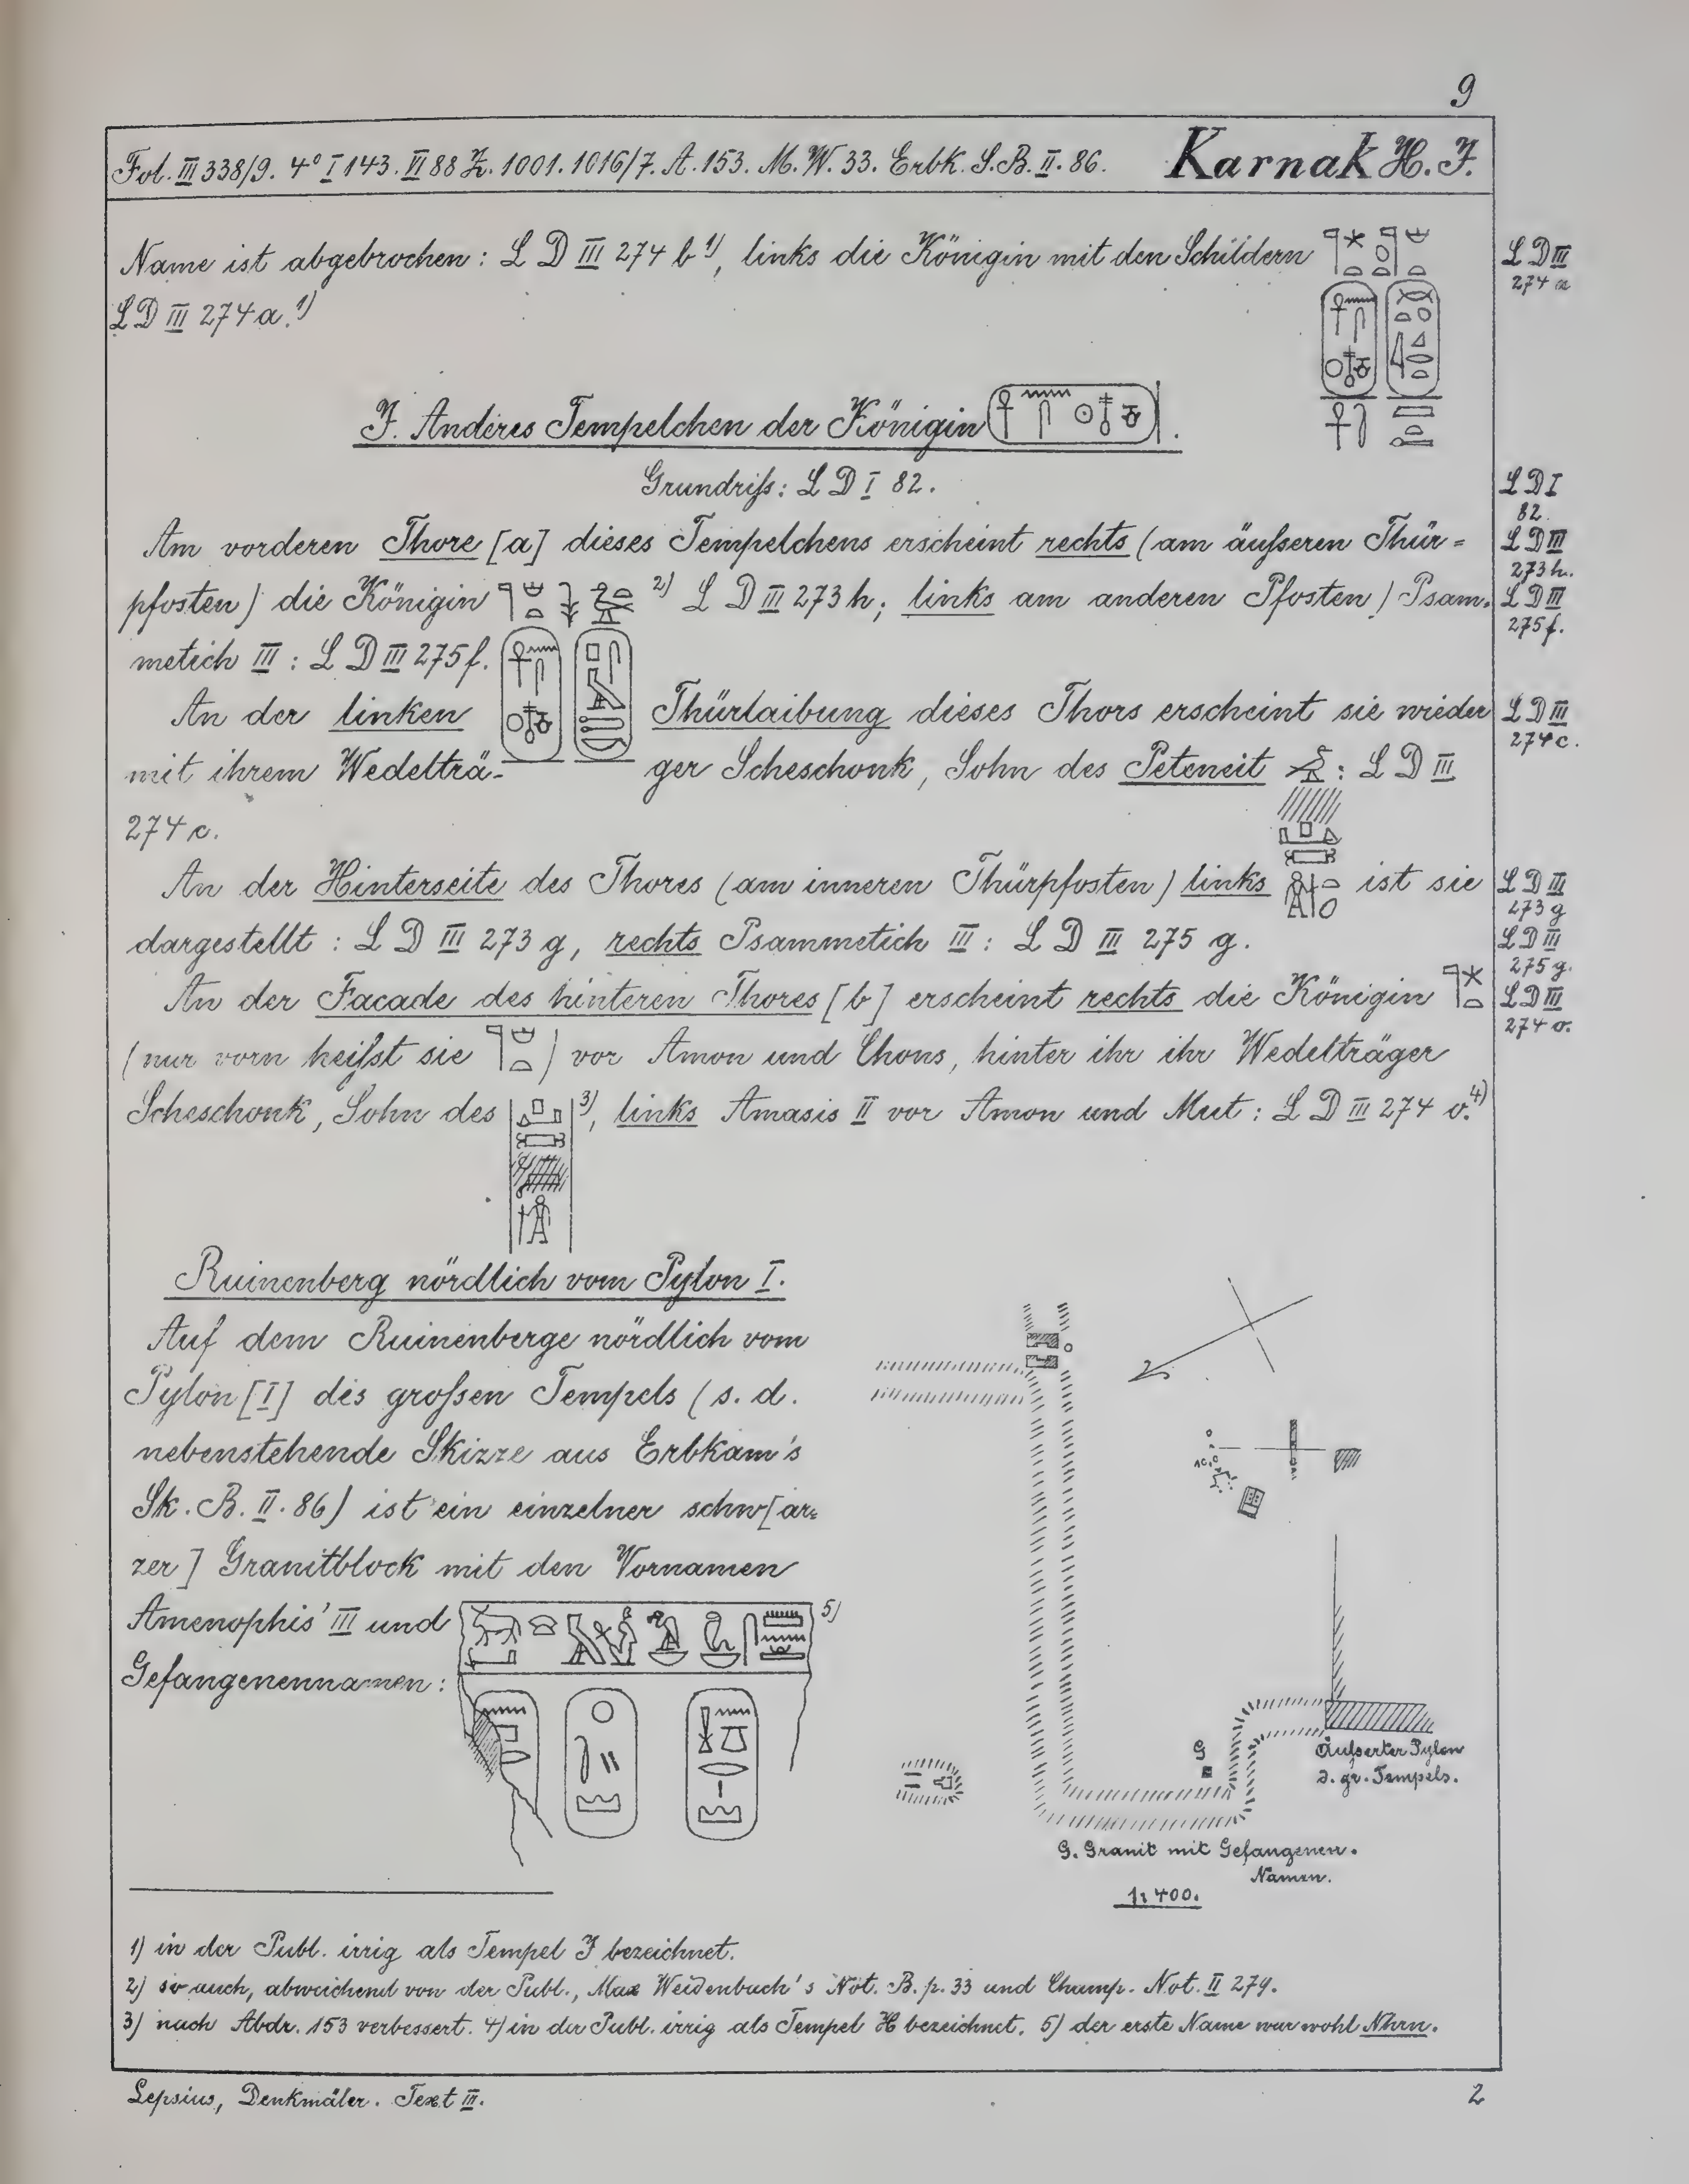 9
Fol. III 338/9. 4° I 143. II 88 Z. 1001. 1016/7. A. 153. M. W. 33. Erbk. S. B. II. 86. Karnak H. J.
Name ist abgebrochen: L D III 274 b 1), links die Königin mit den Schildern
L D III 274 a
L D III 274 a. 1)
J. Anderes Tempelchen der Königin .
Grundriſs: L D I 82.
L D I 82.
Am vorderen Thore [a] dieses Tempelchens erscheint rechts (am äuſseren Thür=
L D III 273 h.
pfosten) die Königin 2) L D III 273 h; links am anderen Pfosten) Psam-
L D III 275 f.
metich III : L D III 275 f.
An der linken Thürlaibung dieses Thors erscheint sie wieder
L D III 274 c.
mit ihrem Wedelträ- ger Scheschonk, Sohn des Peteneit : L D III
274 c.
An der Hinterseite des Thores (am inneren Thürpfosten) links ist sie
L D III 273 g
dargestellt : L D III 273 g, rechts Psammetich III : L D III 275 g.
L D III 275 g.
An der Facade des hinteren Thores [b] erscheint rechts die Königin
L D III 274 o.
(nur vorn heiſst sie ) vor Amon und Chons, hinter ihr ihr Wedelträger
Scheschonk, Sohn des 3), links Amasis II vor Amon und Mut : L D III 274 o. 4)
Ruinenberg nördlich vom Pylon I.
Auf dem Ruinenberge nördlich vom
Pylon [I] des groſsen Tempels (s. d.
nebenstehende Skizze aus Erbkam's
Sk. B. II. 86) ist ein einzelner schw[ar=
zer] Granitblock mit den Vornamen
Amenophis' III und 5)
Gefangenennamen :
G
Äuſserster Pylon
d. gr. Tempels.
G. Granit mit Gefangenen.
Namen.
1:400.
1) in der Publ. irrig als Tempel J bezeichnet.
2) so auch, abweichend von der Publ., Max Weidenbach's Not. B. p. 33 und Champ. Not. II 279.
3) nach Abdr. 153 verbessert. 4) in der Publ. irrig als Tempel H bezeichnet. 5) der erste Name war wohl Nhrn.
Lepsius, Denkmäler. Text III.
2